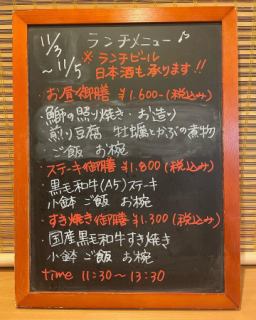 11/3 ランチメニュー♪
～11/5 ※ランチビール
日本酒も承ります!!
・お昼御膳 ¥1.600-(税込み)
・鰤の照り焼き・お造り
煎り豆腐 牡蠣とかぶの煮物
ご飯 お椀
・ステーキ御膳 ¥1.800(税込み)
・黒毛和牛(A5)ステーキ
小鉢 ご飯 お椀
・すき焼き御膳 ¥1.300(税込み)
・国産黒毛和牛すき焼き
小鉢 ご飯 お椀
time 11:30～13:30